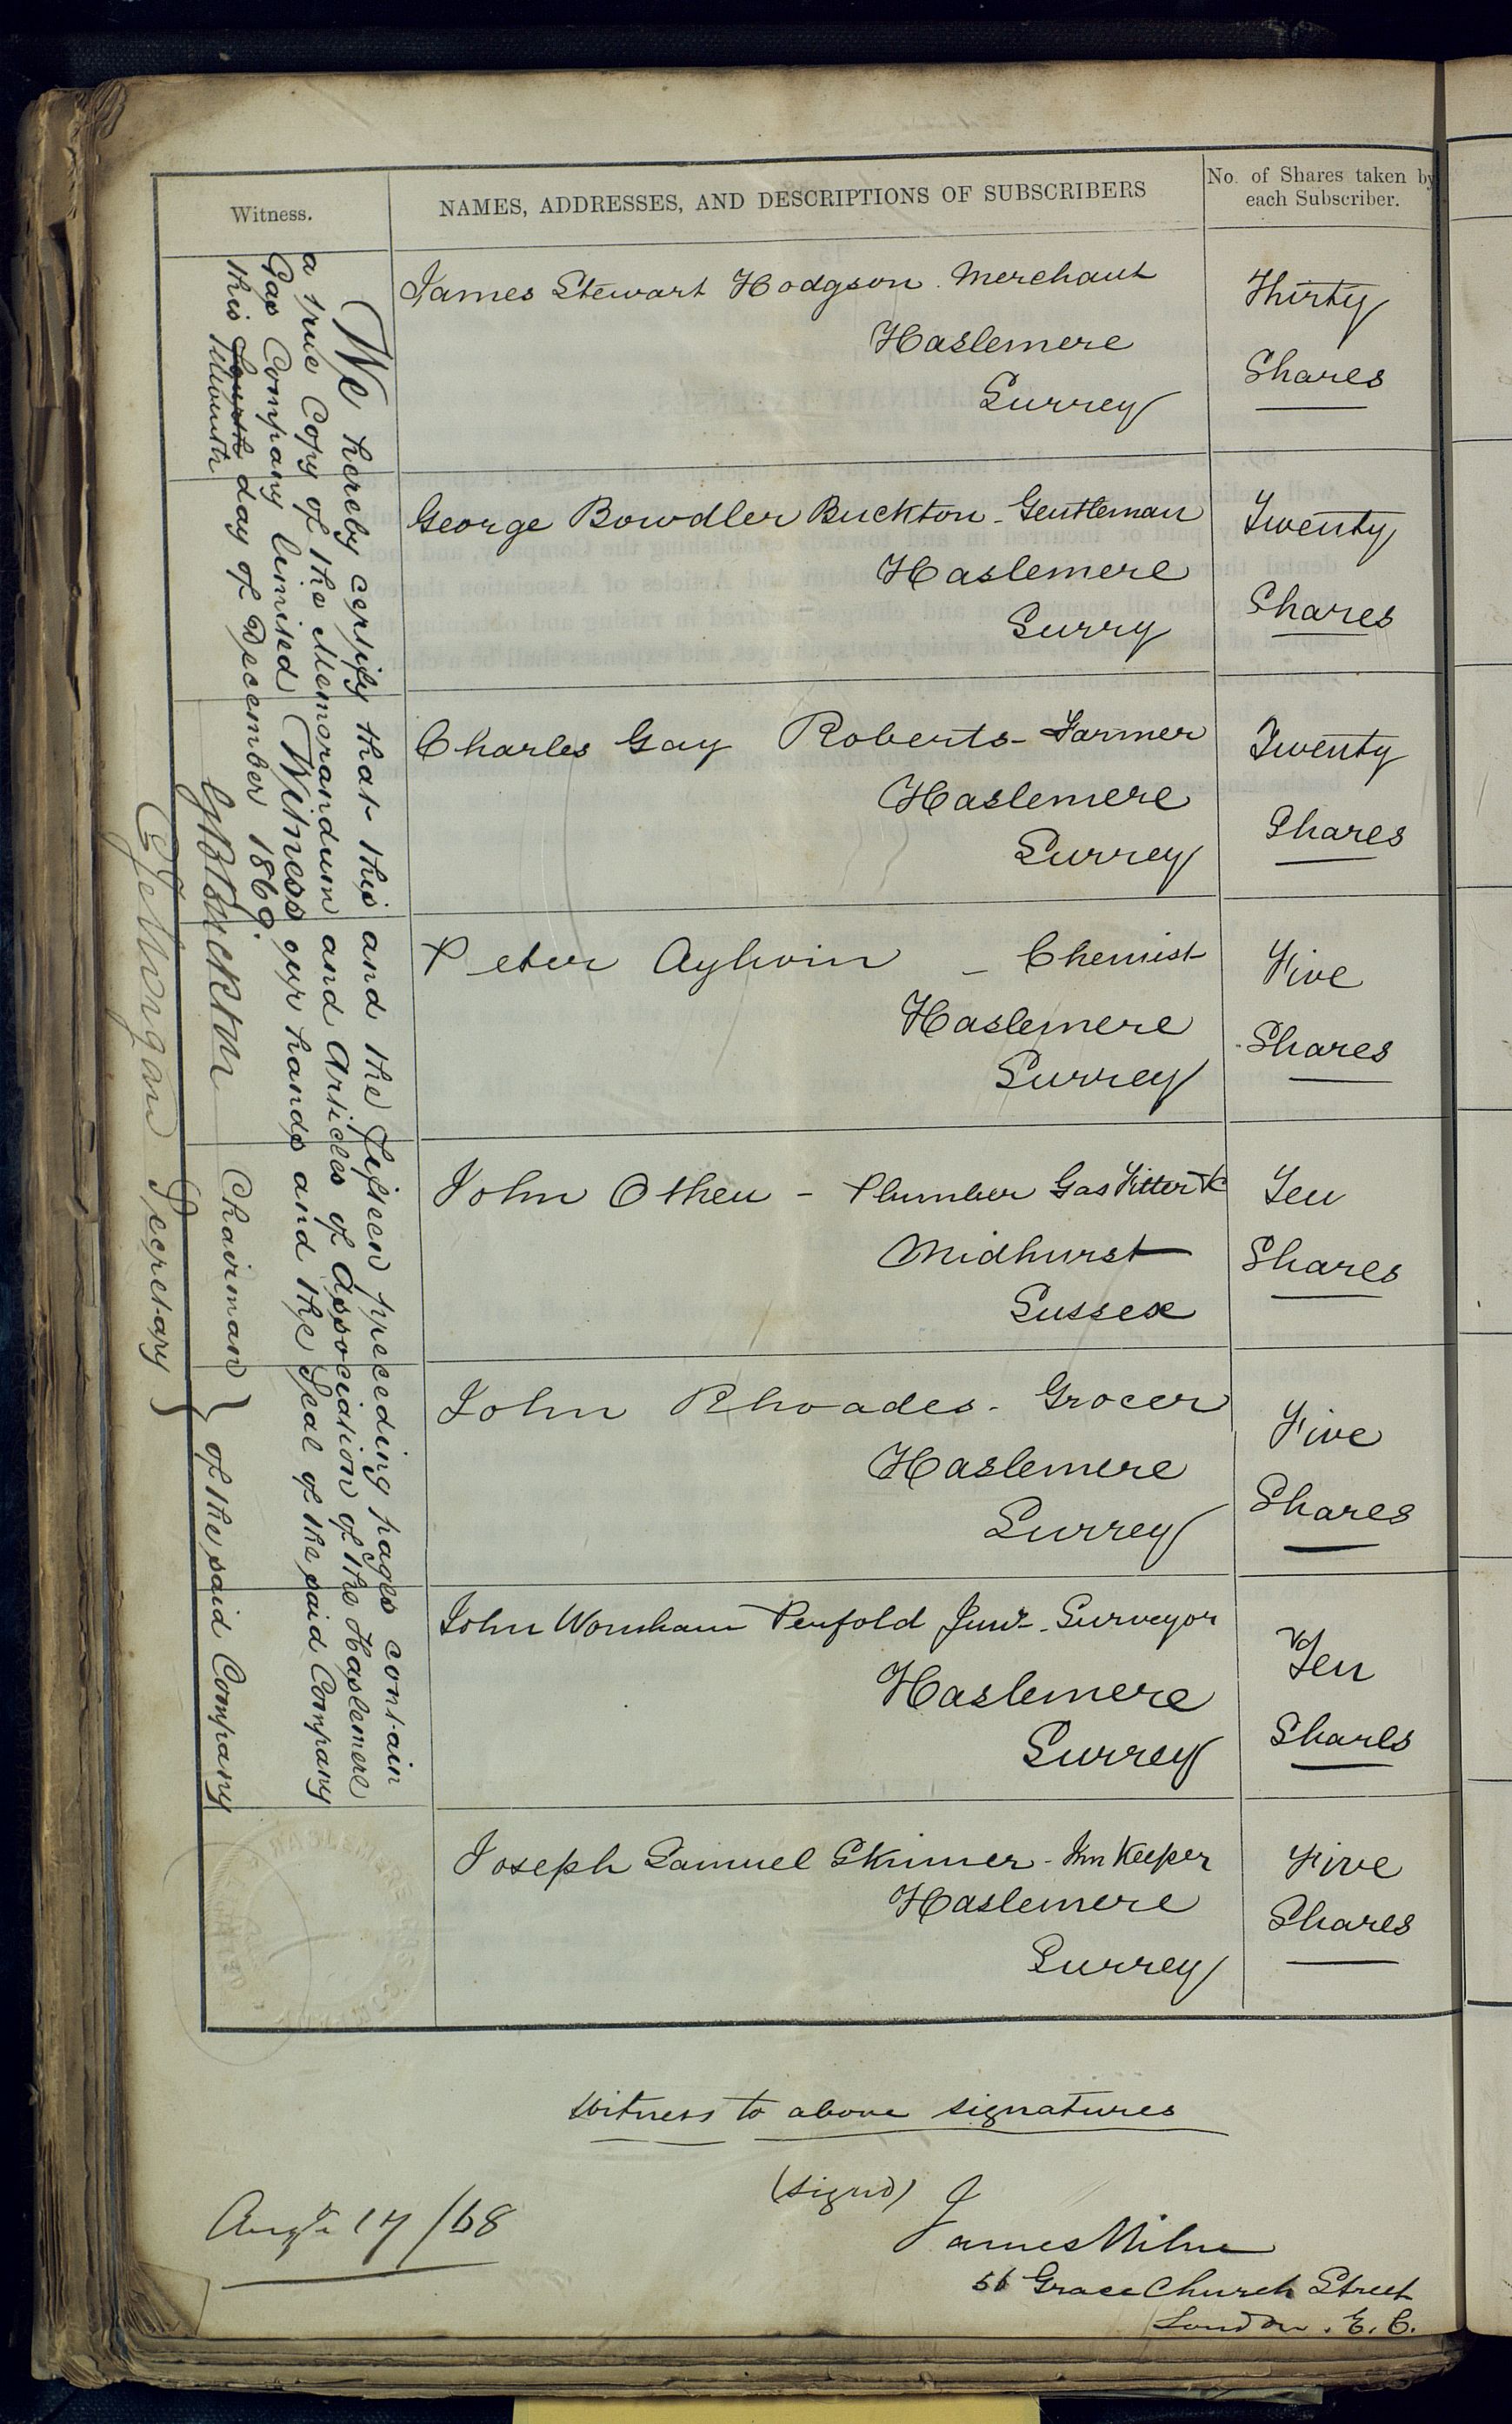 Witness.
NAMES, ADDRESSES, AND DESCRIPTIONS OF SUBSCRIBERS
No. of Shares taken by
each Subscriber.
James Stewart Hodgson. Merchant
Haslemere
Surrey
Thirty
Shares
George Bowdler Buckton - Gentleman
Haslemere
Surry
Twenty
Shares
Charles Gay Roberts - Farmer
Haslemere
Surrey
Twenty
Shares
Peter Aylwin - Chemist
Haslemere
Surrey
Five
Shares
John Othen - Plumber Gas Fitter &c
Midhurst
Sussex
Ten
Shares
John Rhoades - Grocer
Haslemere
Surrey
Five
Shares
John Wornham Penfold Junr - Surveyor
Haslemere
Surrey
Ten
Shares
Joseph Samuel Skinner - Inn Keeper
Haslemere
Surrey
Five
Shares
We hereby certify that this and the fifteen preceding pages contain
a true Copy of the Memorandum and Articles of Association of the Haslemere
Gas Company limited Witness our hands and the Seal of the said Company
this fourth day of December 1869.
Eleventh
G B Buckton Chairman } of the said Company
Morgan Secretary }
HASLEMERE GAS COMPANY LIMITED
Witness to above signatures
(signd)
James Milne
56 Grace Church Street
London. E. C.
Augt 17/68